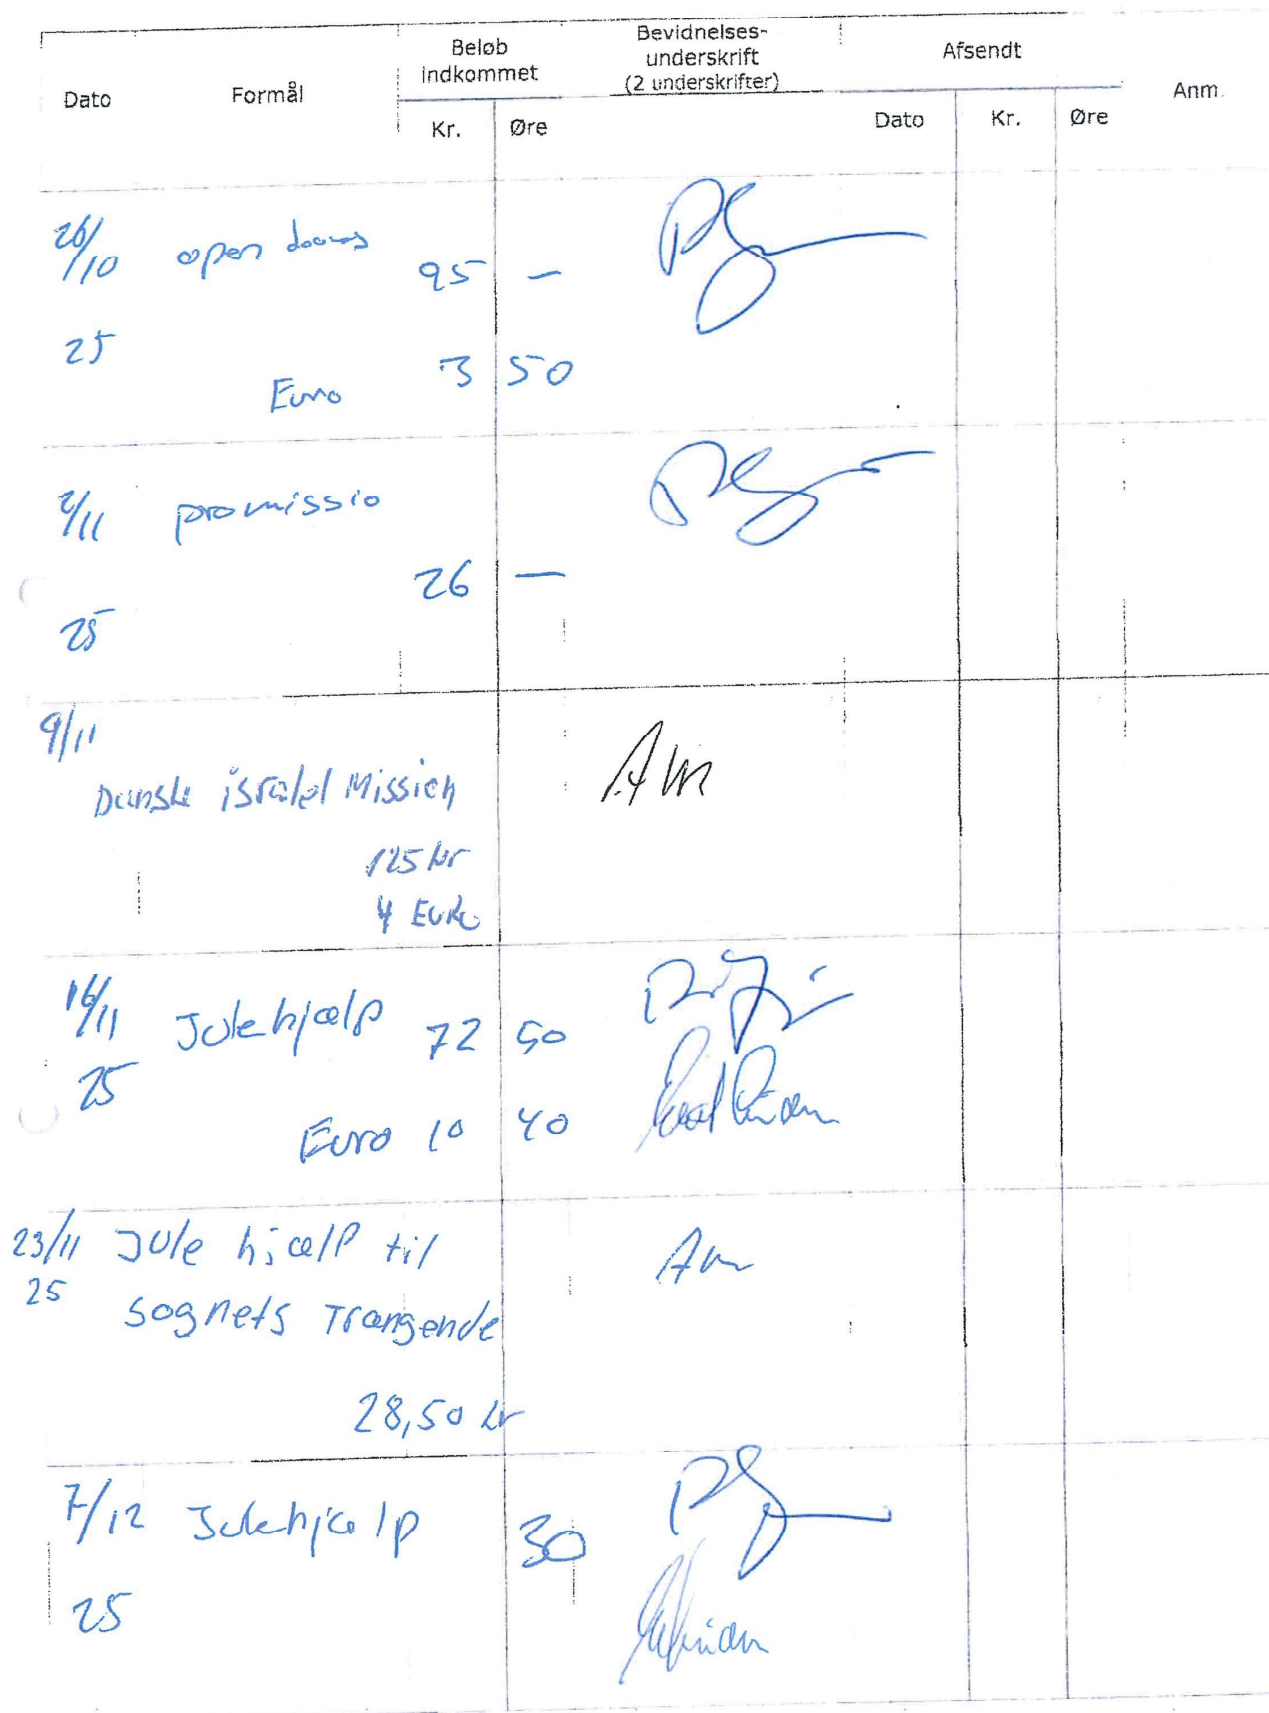 Dato Formål Beløb indkommet Bevidnelses-underskrift (2 underskrifter) Afsendt Anm.
Kr. Øre Dato Kr. Øre
26/10 open doors 95 —
25
Euro 3 50
2/11 promissio
26 —
25
9/11
Danske isralel Mission
125 kr
4 Euro
16/11 Julehjælp 72 50
25
Euro 10 40
23/11 Jule hjælp til
25 sognets Trængende
28,50 kr
7/12 Julehjælp 30
25